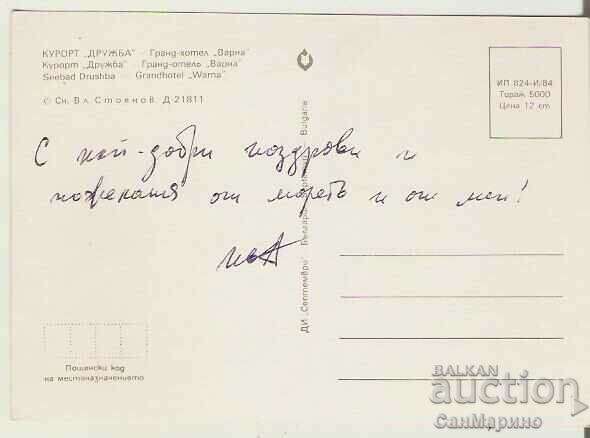 КУРОРТ „ДРУЖБА“ - Гранд-хотел „Варна“
Курорт „Дружба“ - Гранд-отель „Варна“
Seebad Drushba - Grandhotel „Warna“
© Сн. Вл. Стоянов. Д-21811
ИП 824-И/84
Тираж 5000
Цена 12 ст
С най-добри поздрави и
пожелания от морето и от мен!
ДИ „Септември“ Български Bulgaria
Пощенски код
на местоназначението
BALKAN
auction
СанМарино